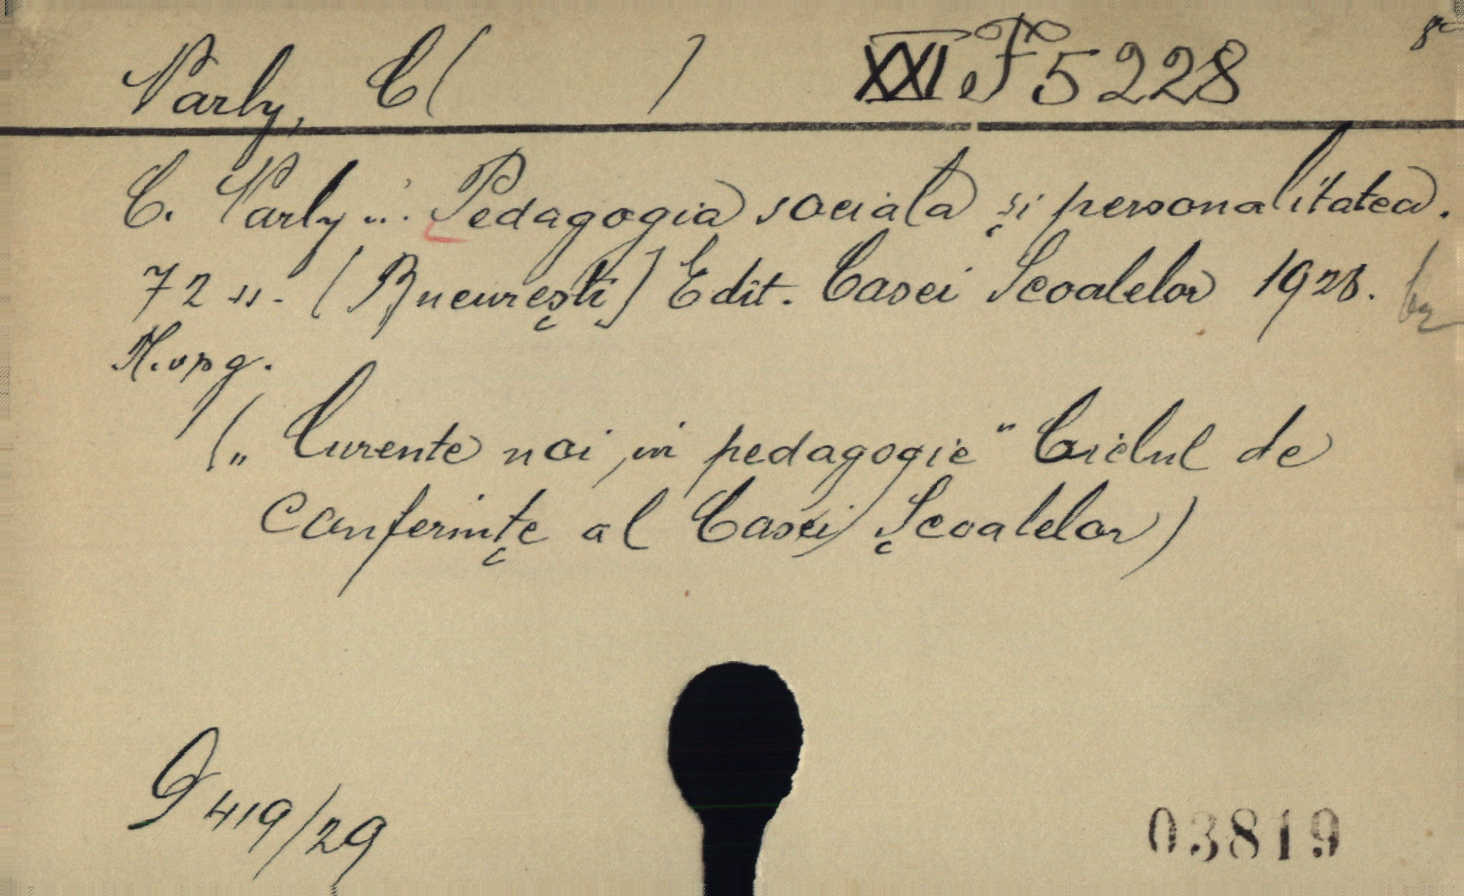 Narly, C( ) XXI F 5228
C. Narly ...: Pedagogia sociala și personalitatea.
72 ss. [București] Edit. Casei Scoalelor 1928.
("Curente noi in pedagogie" Ciclul de
conferințe al Casei Școalelor)
D 419/29
03819